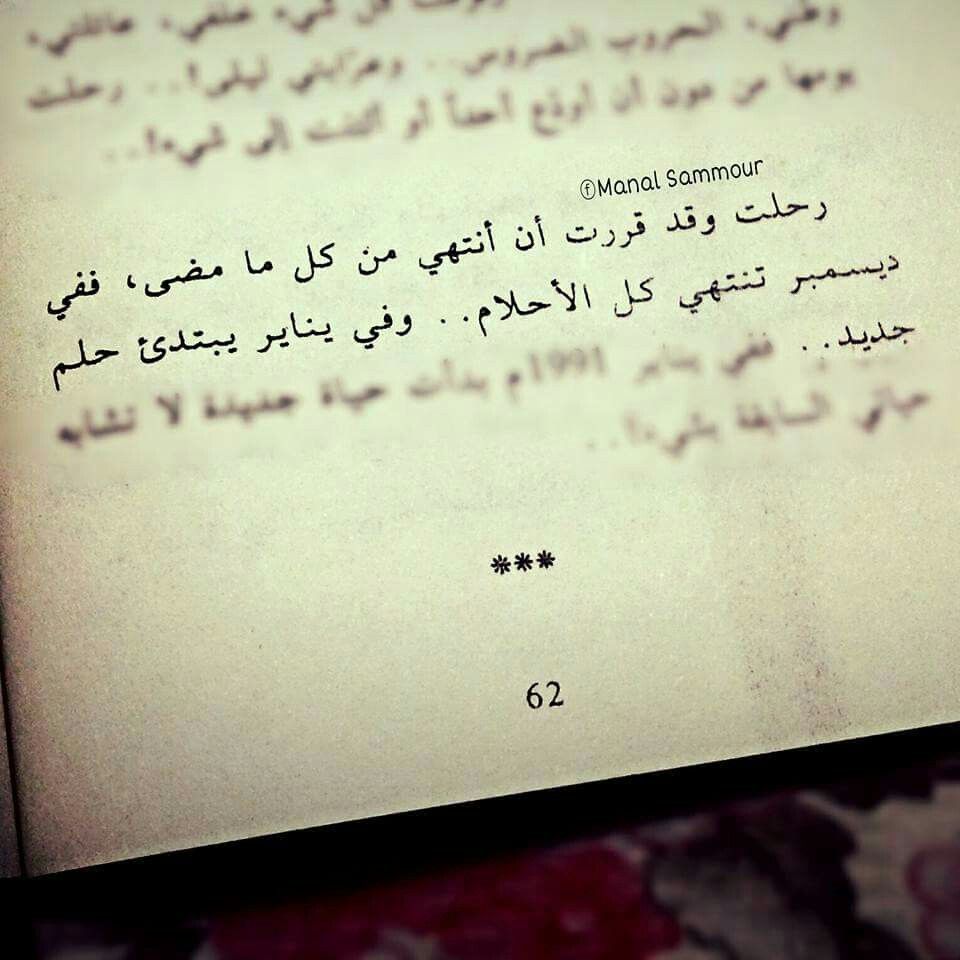 وطني، الحروب الضروس.. وعرّابتي ليلى!.. رحلت
يومها من دون أن أودّع أحداً أو ألتفت إلى شيء!..
ⓕManal Sammour
رحلت وقد قررت أن أنتهي من كل ما مضى، ففي
ديسمبر تنتهي كل الأحلام.. وفي يناير يبتدئ حلم
جديد.. ففي يناير 1991م بدأت حياة جديدة لا تشابه
حياتي السابقة بشيء!..
***
62